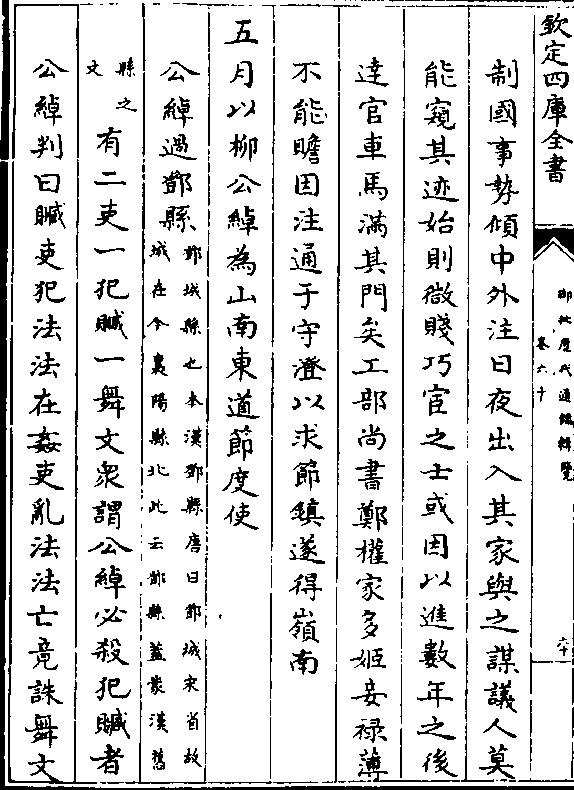 欽定四庫全書
御批歷代通鑑輯覽
卷六十
六十
制國事勢傾中外注日夜出入其家與之謀議人莫
能窺其迹始則微賤巧宦之士或因以進數年之後
達官車馬滿其門矣工部尚書鄭權家多姬妾祿薄
不能贍因注通于守澄以求節鎮遂得嶺南
五月以柳公綽為山南東道節度使
公綽過鄧縣鄧城縣也本漢鄧縣唐曰鄧城宋省故
城在今襄陽縣北此云鄧縣蓋襲漢舊
縣之
文有二吏一犯贓一舞文衆謂公綽必殺犯贓者
公綽判曰贓吏犯法法在姦吏亂法法亡竟誅舞文